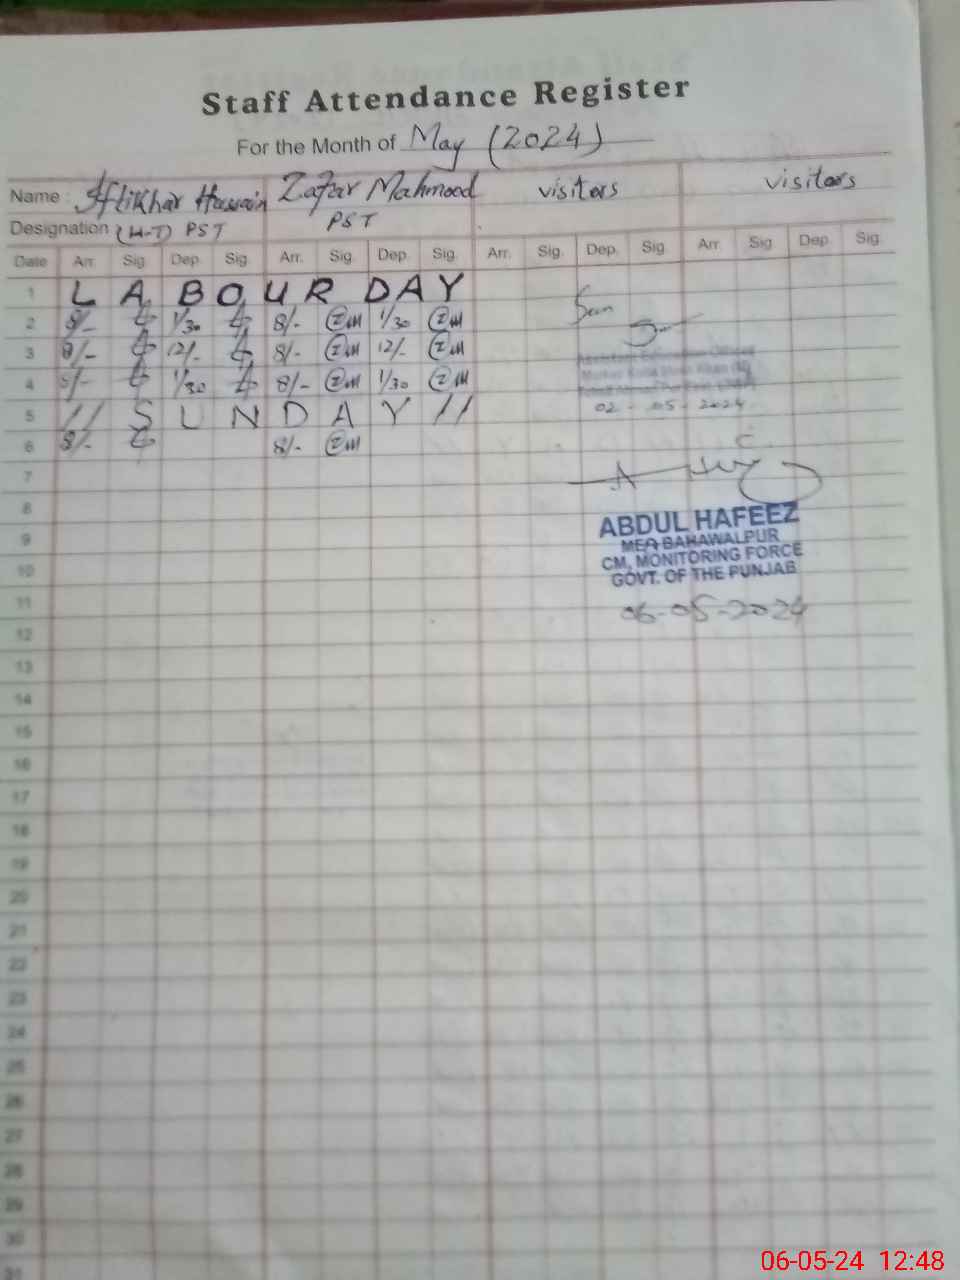 Staff Attendance Register
For the Month of May (2024)
Name : Iftikhar Hussain Zafar Mahmood visitors visitors
Designation (H-T) PST PST
Date Arr. Sig. Dep. Sig. Arr. Sig. Dep. Sig. Arr. Sig. Dep. Sig. Arr. Sig. Dep. Sig.
1 L A B O U R D A Y
2 8/- 1/30 8/- ZM 1/30 ZM
3 8/- 12/- 8/- ZM 12/- ZM
4 8/- 1/30 8/- ZM 1/30 ZM
02-05-2024
5 // S U N D A Y //
6 8/- 8/- ZM
7
8
ABDUL HAFEEZ
9
MEA BAHAWALPUR
CM, MONITORING FORCE
10
GOVT. OF THE PUNJAB
11
06-05-2024
12
13
14
15
16
17
18
19
20
21
22
23
24
25
26
27
28
29
30
31
06-05-24 12:48